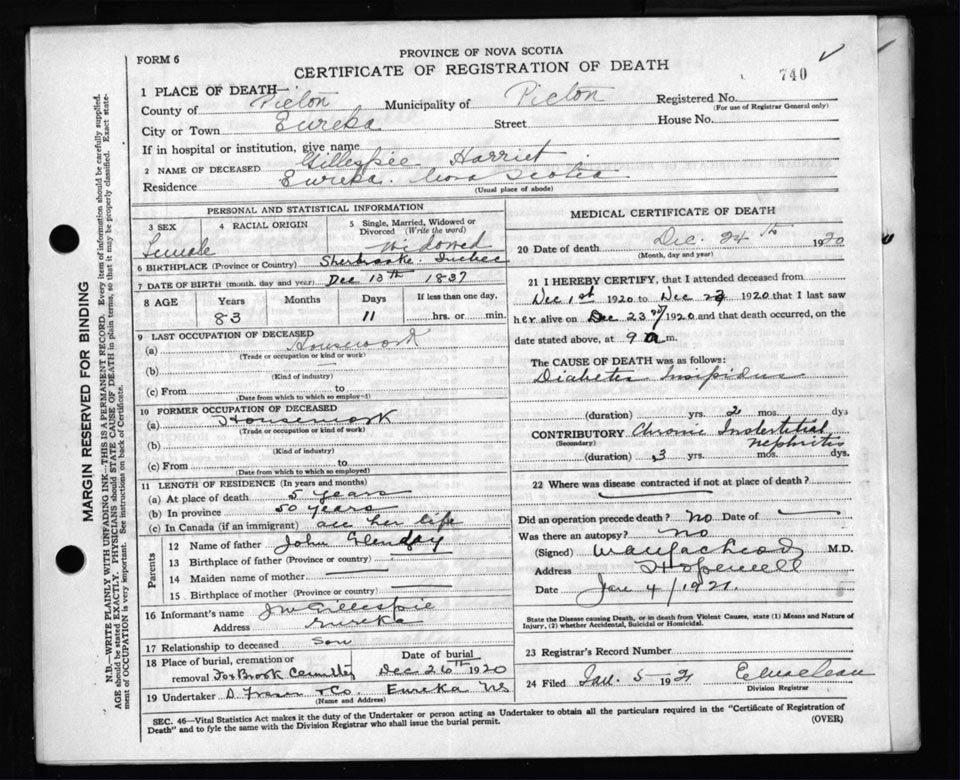 PROVINCE OF NOVA SCOTIA
FORM 6
CERTIFICATE OF REGISTRATION OF DEATH
740
1 PLACE OF DEATH—
County of Pictou Municipality of Pictou Registered No.
(For use of Registrar General only)
City or Town Eureka Street House No.
If in hospital or institution, give name
2 NAME OF DECEASED Gillespie Harriet
Residence Eureka Nova Scotia
(Usual place of abode)
PERSONAL AND STATISTICAL INFORMATION
3 SEX 4 RACIAL ORIGIN 5 Single, Married, Widowed or Divorced (Write the word)
Female Widowed
6 BIRTHPLACE (Province or Country) Sherbrooke. Quebec
7 DATE OF BIRTH (month, day and year) Dec 13th 1837
8 AGE Years Months Days If less than one day,
83 11 hrs. or min.
9 LAST OCCUPATION OF DECEASED
(a) Housework
(Trade or occupation or kind or work)
(b)
(Kind of industry)
(c) From to
(Date from which to which so employed)
10 FORMER OCCUPATION OF DECEASED
(a) Housework
(Trade or occupation or kind of work)
(b)
(Kind of industry)
(c) From to
(Date from which to which so employed)
11 LENGTH OF RESIDENCE (In years and months)
(a) At place of death 5 years
(b) In province 50 years
(c) In Canada (if an immigrant) all her life
Parents
12 Name of father John Glenday
13 Birthplace of father (Province or country)
14 Maiden name of mother
15 Birthplace of mother (Province or country)
16 Informant's name J W Gillespie
Address Eureka
17 Relationship to deceased Son
18 Place of burial, cremation or removal Fox Brook Cemetery Date of burial Dec 26th 1920
19 Undertaker D. Fraser & Co. Eureka NS
(Name and Address)
MEDICAL CERTIFICATE OF DEATH
20 Date of death Dec. 24th 1920
(Month, day and year)
21 I HEREBY CERTIFY, that I attended deceased from
Dec 1st 1920 to Dec 23 1920 that I last saw
her alive on Dec 23rd 1920 and that death occurred, on the
date stated above, at 9 a m.
The CAUSE OF DEATH was as follows:
Diabetes Insipidus
(duration) yrs. 2 mos. dys
CONTRIBUTORY Chronic Interstitial
(Secondary) Nephritis
(duration) 3 yrs. mos. dys.
22 Where was disease contracted if not at place of death?
Did an operation precede death? No Date of
Was there an autopsy? No
(Signed) M.D.
Address Hopewell
Date Jan 4/1921
State the Disease causing Death, or in death from Violent Causes, state (1) Means and Nature of
Injury, (2) whether Accidental, Suicidal or Homicidal.
23 Registrar's Record Number
24 Filed Jan. 5 1921 E Maclean
Division Registrar
SEC. 46—Vital Statistics Act makes it the duty of the Undertaker or person acting as Undertaker to obtain all the particulars required in the "Certificate of Registration of
Death" and to fyle the same with the Division Registrar who shall issue the burial permit.
(OVER)
MARGIN RESERVED FOR BINDING
N.B.—WRITE PLAINLY WITH UNFADING INK—THIS IS A PERMANENT RECORD. Every item of information should be carefully supplied.
AGE should be stated EXACTLY. PHYSICIANS should STATE CAUSE OF DEATH in plain terms, so that it may be properly classified. Exact state-
ment of OCCUPATION is very important. See instructions on back of Certificate.